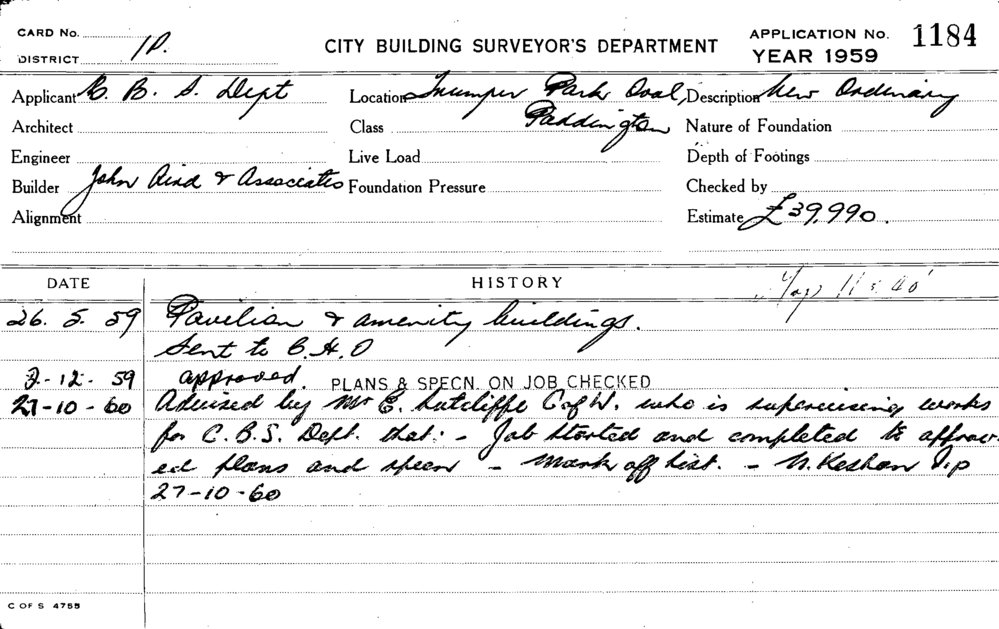 CARD No.
DISTRICT 1P.
CITY BUILDING SURVEYOR'S DEPARTMENT
APPLICATION No. 1184
YEAR 1959
Applicant C. B. S. Dept Location Trumper Park Oval, Description New Ordinary
Architect Class Paddington Nature of Foundation
Engineer Live Load Depth of Footings
Builder John Aird & Associates Foundation Pressure Checked by
Alignment Estimate £39,990.
DATE HISTORY
26. 5. 59 Pavilion & amenity buildings.
Sent to C.H.O
2-12-59 approved. PLANS & SPECN. ON JOB CHECKED
27-10-60 Advised by Mr E. Sutcliffe C of W. who is supervising works
for C.B.S. Dept. that:- Job started and completed to approv-
ed plans and specn - Mark off list. -
27-10-60
C OF S 4755